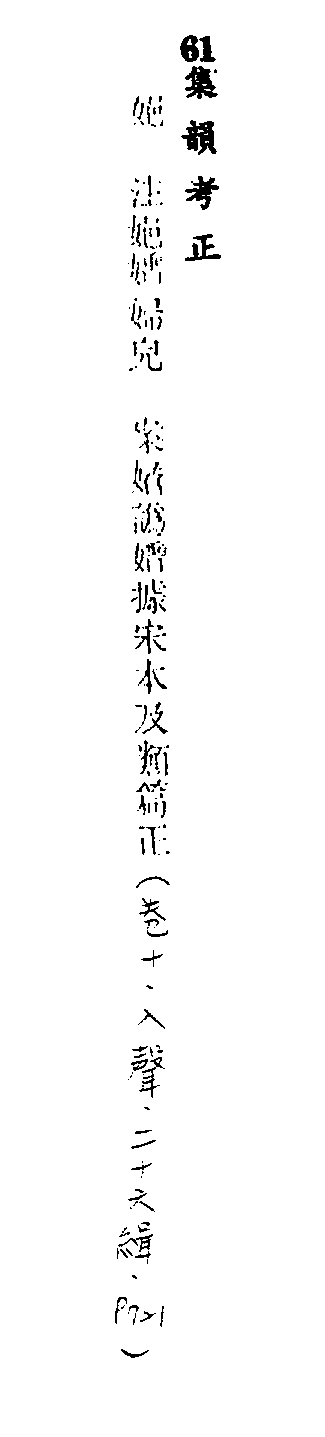 61集韻考正
㛕 注㛕 婦皃 案 譌 據宋本及類篇正(卷十、入聲、二十六緝、P721)